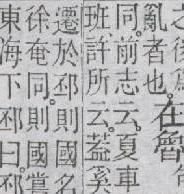 之後爲
亂者也在魯
同前志云夏車
班許所云蓋奚
遷於邳則國名
徐奄同則國嘗
東海下邳曰